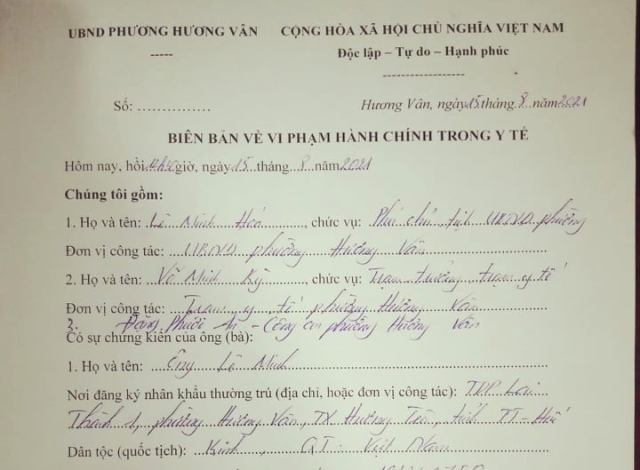 UBND PHƯƠNG HƯƠNG VÂN CỘNG HÒA XÃ HỘI CHỦ NGHĨA VIỆT NAM
----- Độc lập – Tự do – Hạnh phúc
------------------
Số: ............... Hương Vân, ngày 15 tháng 8 năm 2021
BIÊN BẢN VỀ VI PHẠM HÀNH CHÍNH TRONG Y TẾ
Hôm nay, hồi giờ, ngày 15 tháng 8 năm 2021
Chúng tôi gồm:
1. Họ và tên: Lê Minh Hoá, chức vụ: Phó chủ tịch UBND phường
Đơn vị công tác: UBND phường Hương Vân
2. Họ và tên: Võ Minh Kỳ, chức vụ: Trạm trưởng trạm y tế
Đơn vị công tác: Trạm y tế phường Hương Vân
3. Đặng Phước An - Công an phường Hương Vân
Có sự chứng kiến của ông (bà):
1. Họ và tên: Ông Lê Minh
Nơi đăng ký nhân khẩu thường trú (địa chỉ, hoặc đơn vị công tác): TDP Lai
Thành 1, phường Hương Vân, TX Hương Trà, tỉnh TT-Huế
Dân tộc (quốc tịch): Kinh, QT: Việt Nam